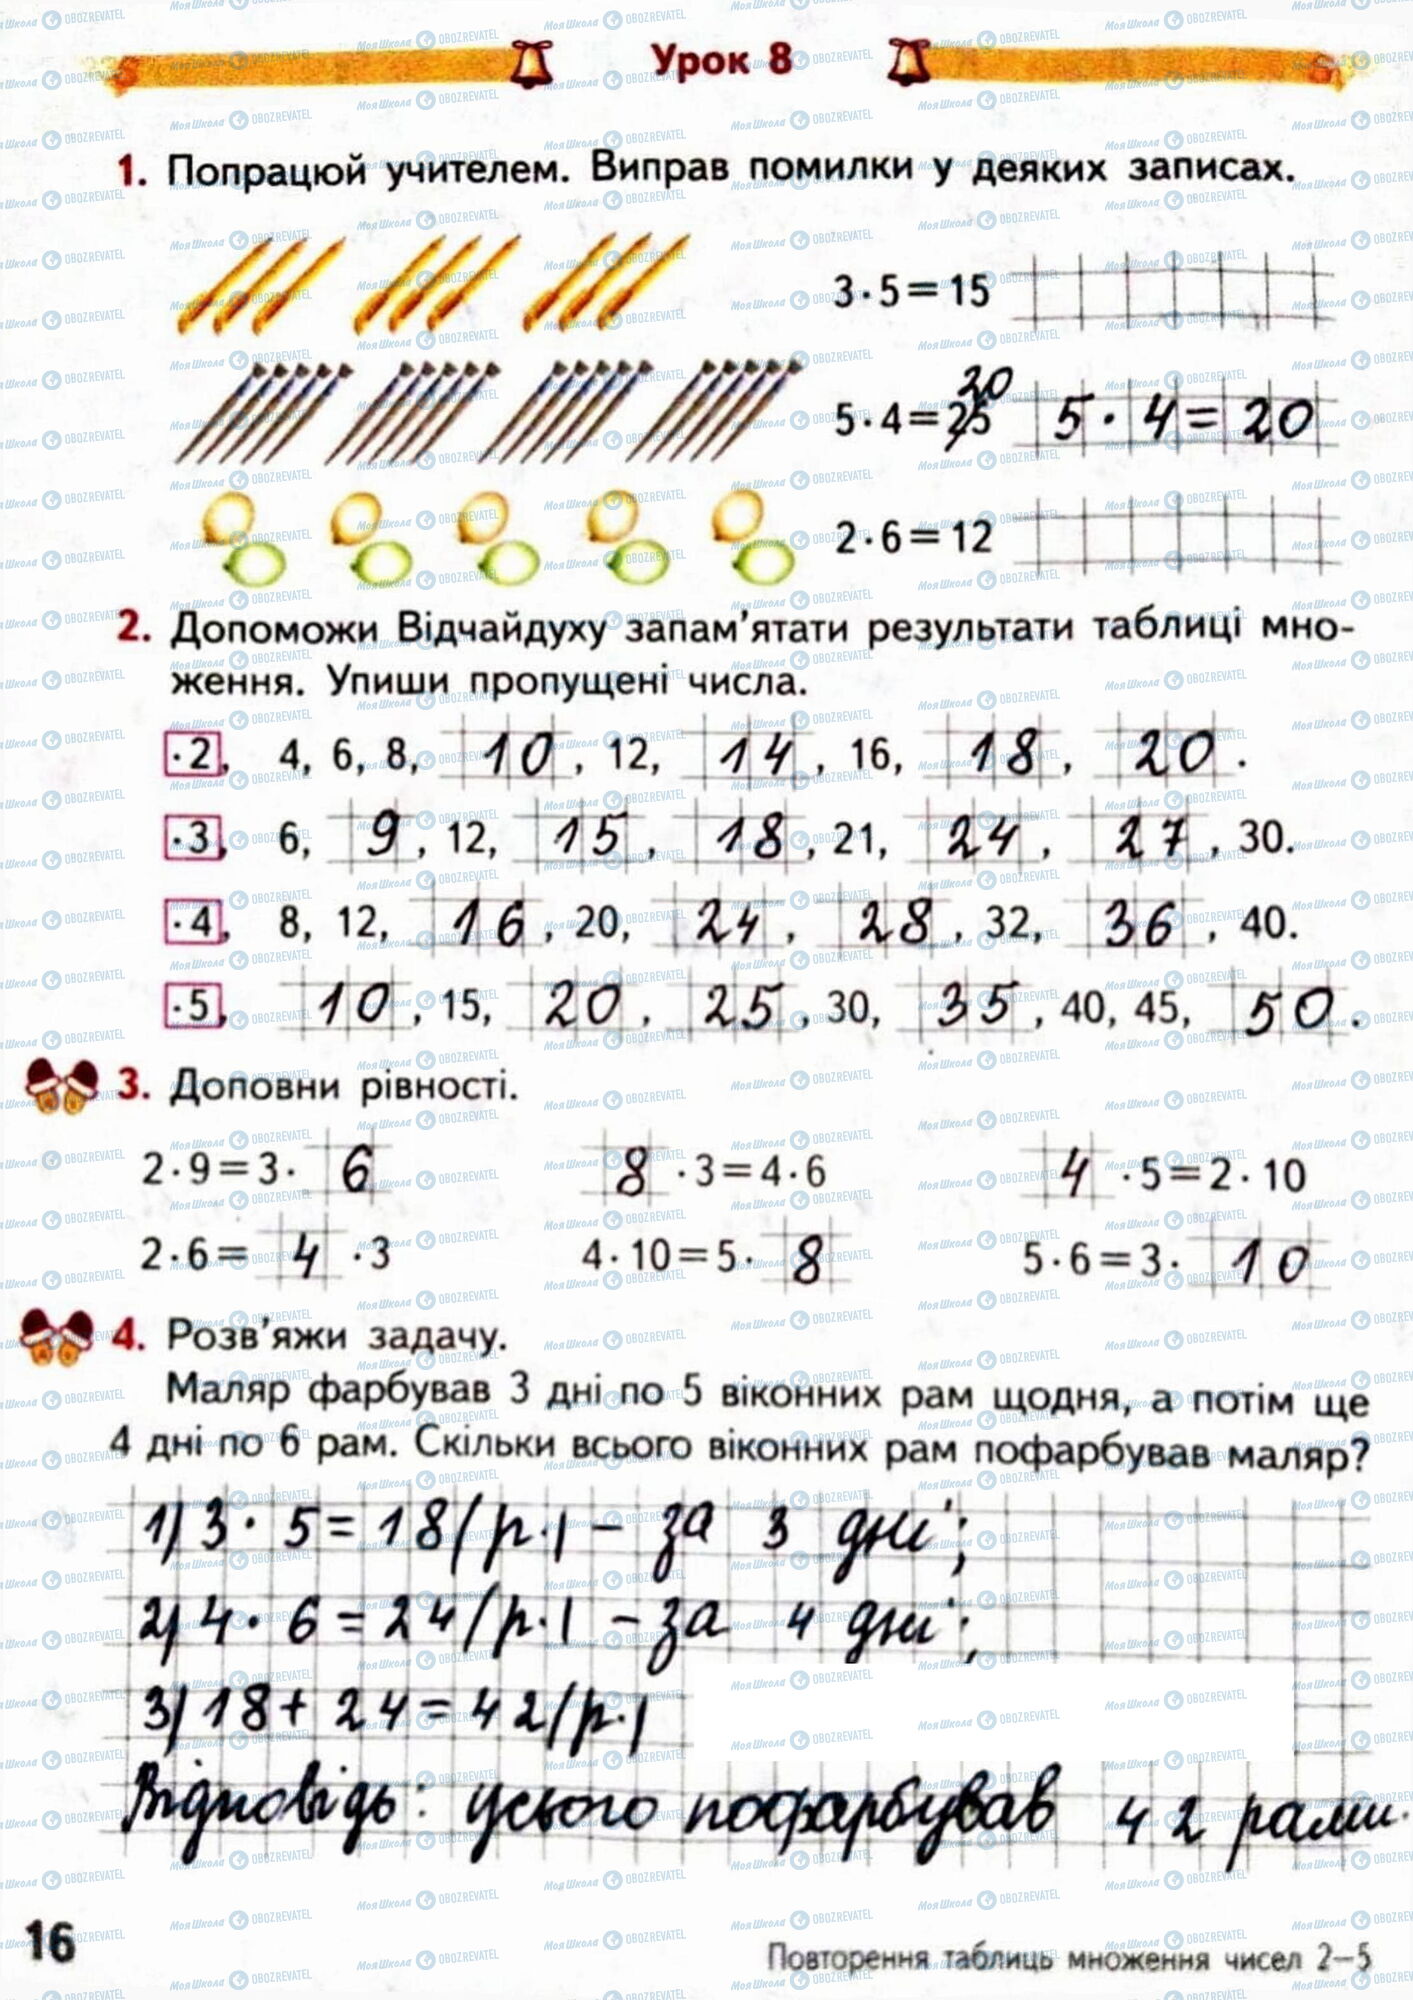 Урок 8
1. Попрацюй учителем. Виправ помилки у деяких записах.
3·5=15
20
5·4=25 5·4=20
2·6=12
2. Допоможи Відчайдуху запам'ятати результати таблиці мно-
ження. Упиши пропущені числа.
·2, 4, 6, 8, 10, 12, 14, 16, 18, 20.
·3, 6, 9, 12, 15, 18, 21, 24, 27, 30.
·4, 8, 12, 16, 20, 24, 28, 32, 36, 40.
·5, 10, 15, 20, 25, 30, 35, 40, 45, 50.
3. Доповни рівності.
2·9=3· 6 8 ·3=4·6 4 ·5=2·10
2·6= 4 ·3 4·10=5· 8 5·6=3· 10
4. Розв'яжи задачу.
Маляр фарбував 3 дні по 5 віконних рам щодня, а потім ще
4 дні по 6 рам. Скільки всього віконних рам пофарбував маляр?
1) 3·5=18(р.) – за 3 дні;
2) 4·6=24(р.) – за 4 дні;
3) 18+24=42(р.)
Відповідь: усього пофарбував 42 рами.
16
Повторення таблиць множення чисел 2–5
МояШкола OBOZREVATEL